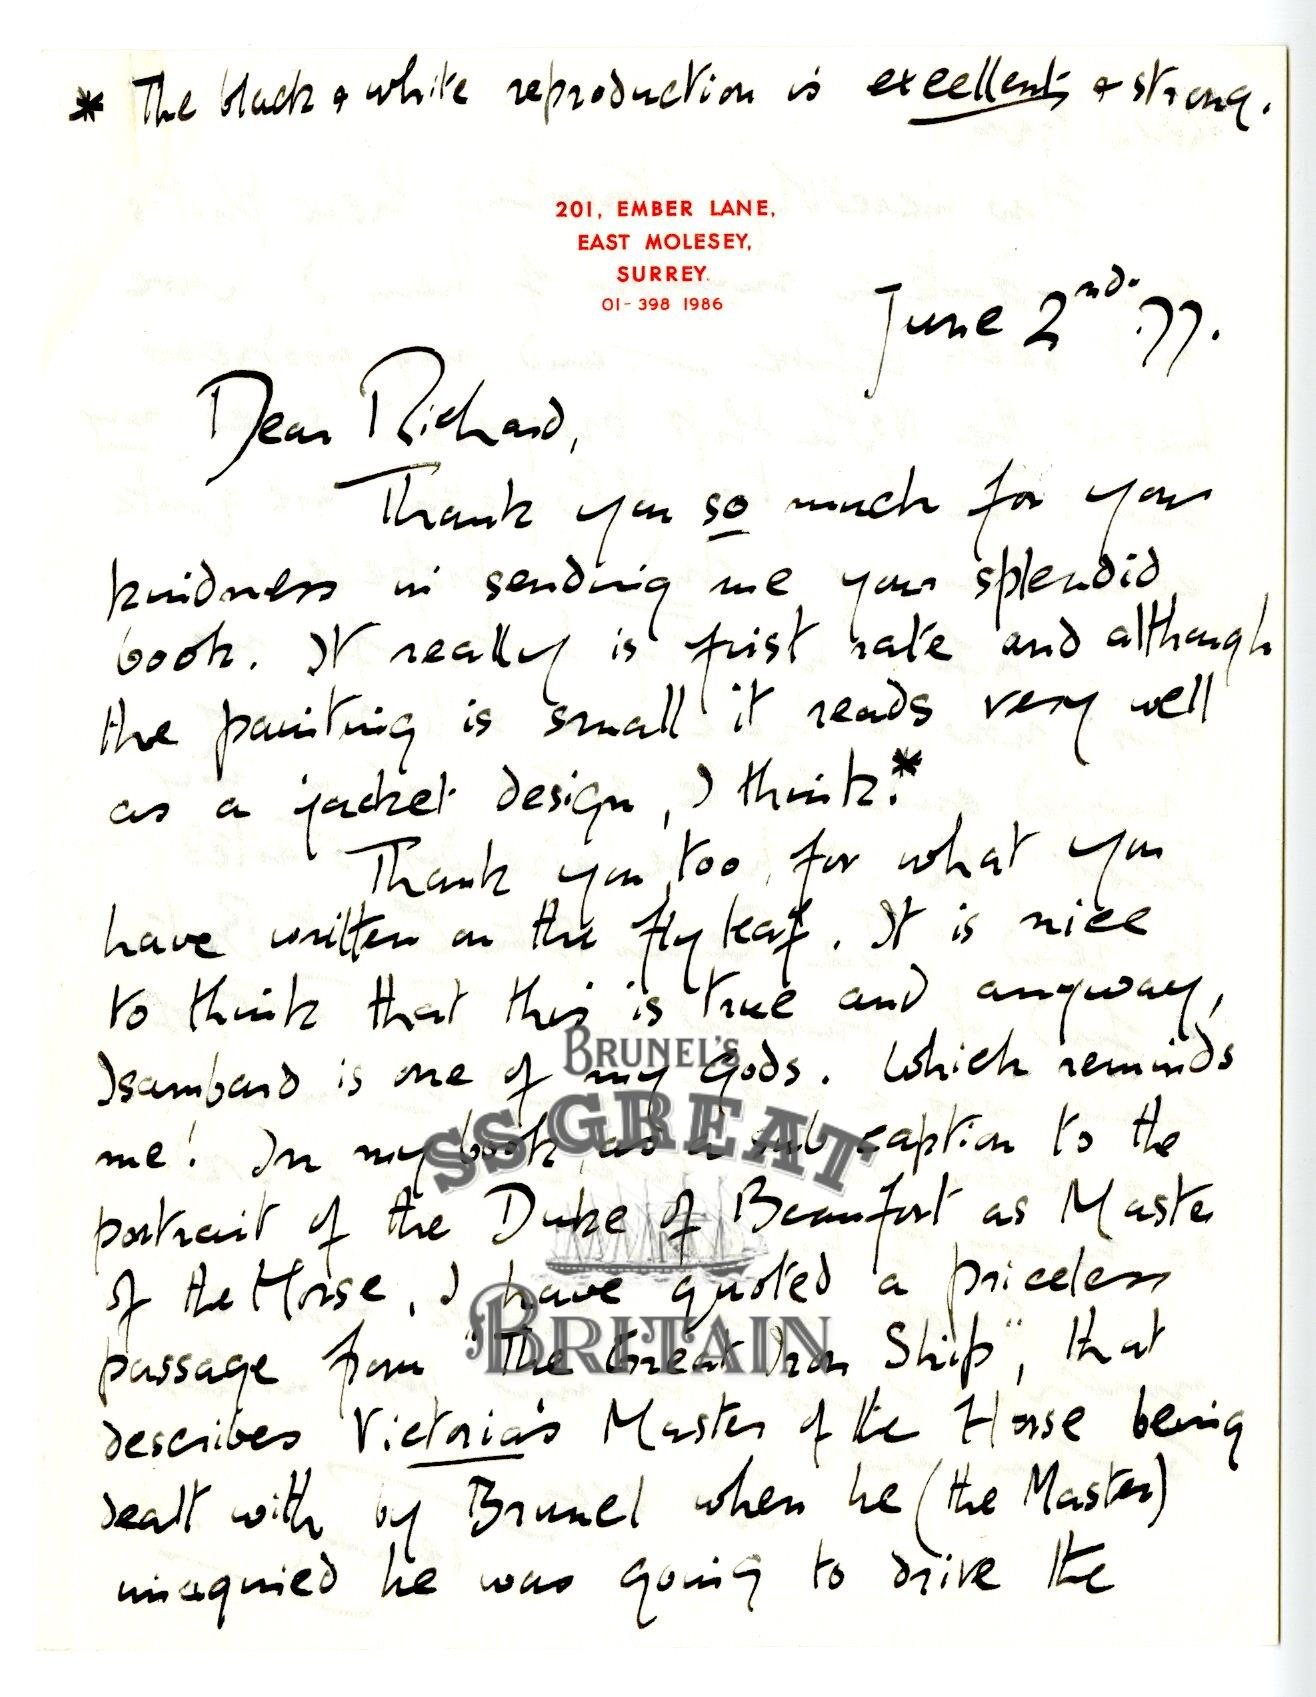 * The black & white reproduction is excellent & strong.
201, EMBER LANE,
EAST MOLESEY,
SURREY.
01-398 1986
June 2nd. 77.
Dear Richard,
Thank you so much for your
kindness in sending me your splendid
book. It really is first rate and although
the painting is small it reads very well
as a jacket design, I think.*
Thank you, too, for what you
have written on the fly leaf. It is nice
to think that this is true and anyway,
Isambard is one of my Gods. Which reminds
me! In my book, as a sub caption to the
portrait of the Duke of Beaufort as Master
of the Horse, I have quoted a priceless
passage from "The Great Iron Ship", that
describes Victoria's Master of the Horse being
dealt with by Brunel when he (the Master)
imagined he was going to drive the
BRUNEL'S
SS GREAT
BRITAIN